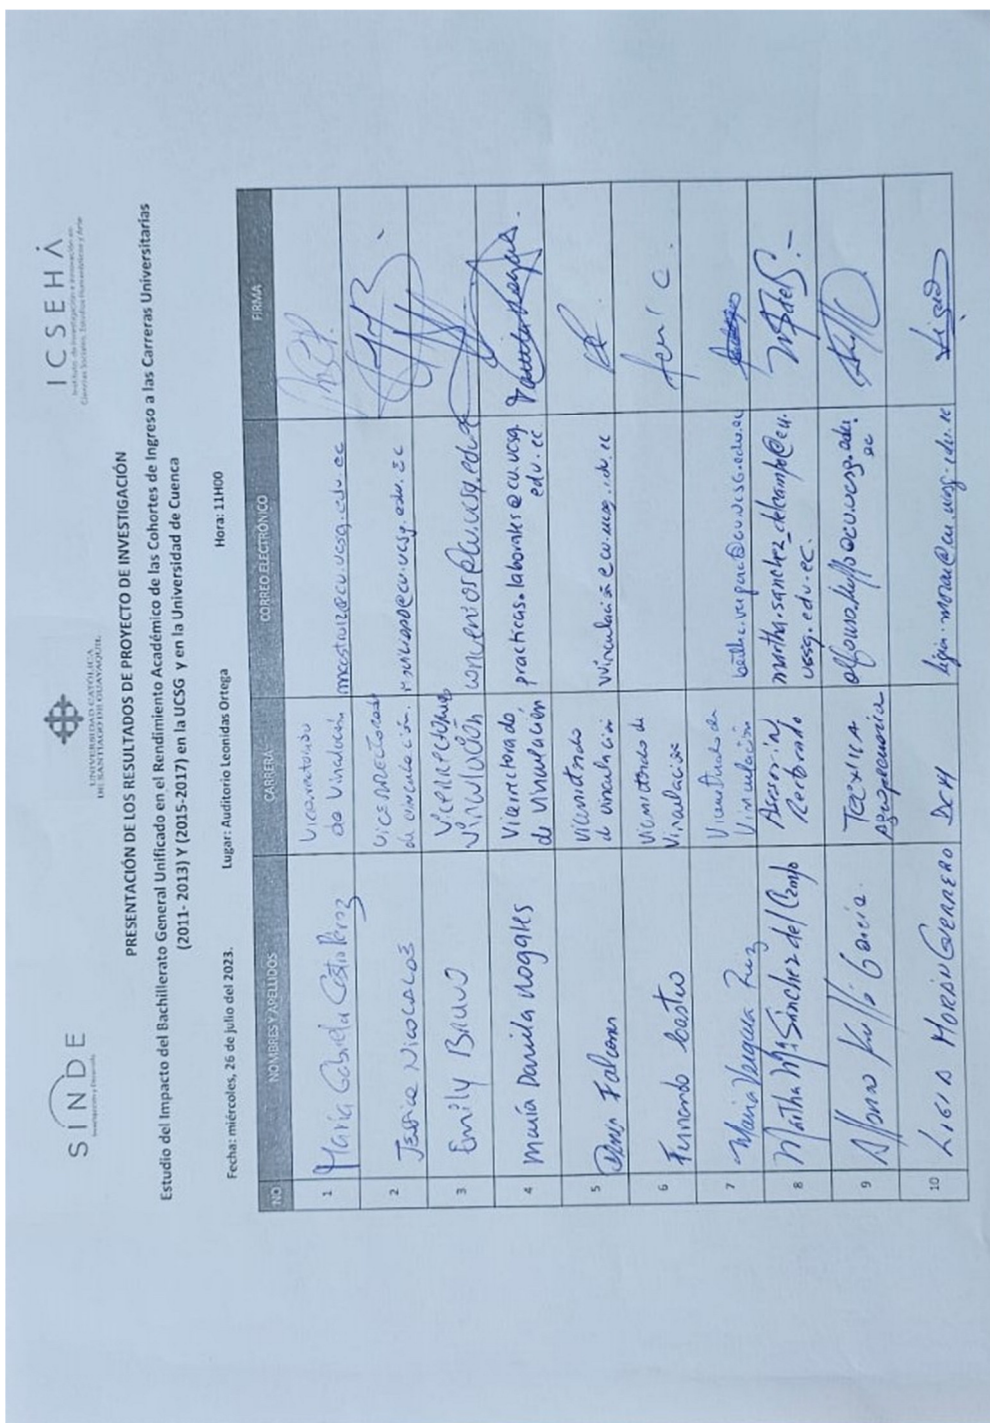 SINDE
Investigación y Desarrollo
UNIVERSIDAD CATÓLICA
DE SANTIAGO DE GUAYAQUIL
ICSEHA
Instituto de Investigación e Innovación en
Ciencias Sociales, Estudios Humanísticos y Arte
PRESENTACIÓN DE LOS RESULTADOS DE PROYECTO DE INVESTIGACIÓN
Estudio del Impacto del Bachillerato General Unificado en el Rendimiento Académico de las Cohortes de Ingreso a las Carreras Universitarias
(2011- 2013) Y (2015-2017) en la UCSG y en la Universidad de Cuenca
Fecha: miércoles, 26 de julio del 2023. Lugar: Auditorio Leonidas Ortega Hora: 11H00
NO NOMBRES Y APELLIDOS CARRERA CORREO ELECTRÓNICO FIRMA
1 María Gabriela
Vicerrectorado
de Vinculación
2 Jessica
Vicerrectorado
de vinculación.
3 Emily Bravo
Vicerrectorado
Vinculación
4 María Daniela Nogales
Vicerrectorado
de Vinculación
practicas.laborales@cu.ucsg.
edu.ec
5 Falcones
Vicerrectorado
de vinculación
vinculación@cu.ucsg.edu.ec
6 Fernando Castro
Vicerrectorado de
Vinculación
7 María Vergara Ruiz
Vicerrectorado de
Vinculación
8 Martha Mª Sánchez del Campo
Asesoría
Rectorado
martha.sanchez_delcampo@cu.
ucsg.edu.ec.
9 Alfonso Kuffó García.
Técnica
Agropecuaria
alfonso.kuffo@cu.ucsg.edu.
ec
10 LIGIA MORÁN GUERRERO
ligia.moran@cu.ucsg.edu.ec